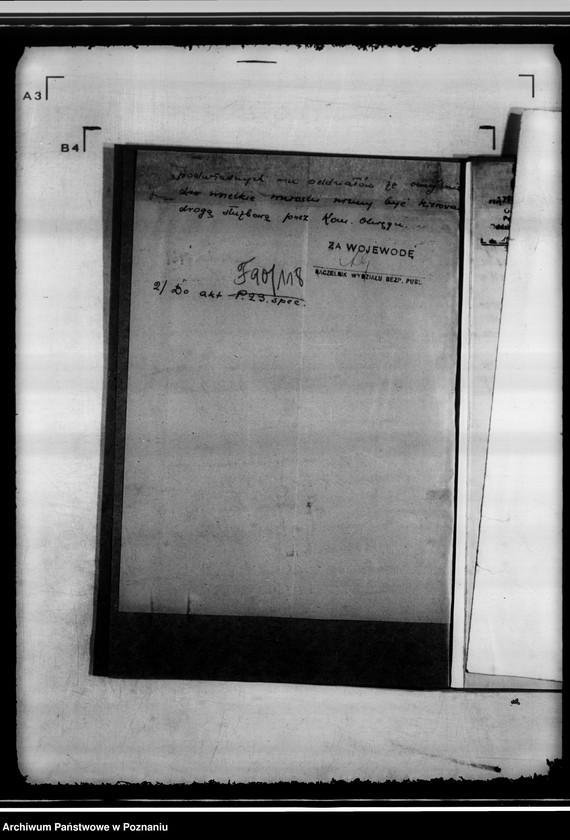 A3
B4
podwładnych mu oddziałów że
wszelkie muszą być
drogą służbową przez Kom. Okręgu.
ZA WOJEWODĘ
NACZELNIK WYDZIAŁU BEZP. PUBL.
F90/118
2/ Do akt P.23.spec.
Archiwum Państwowe w Poznaniu